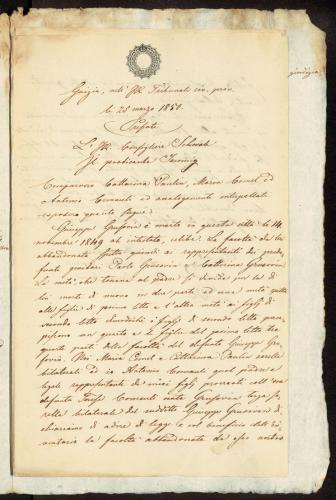 Gorizia, nell' I.R. Tribunale civ. prov.
li 28 marzo 1850.
Presenti
L' I.R. Consigliere Schwab
Il praticante
Comparvero Catterina Paulin, Maria Comel ed
Antonio Comauli ed analogamente interpellati
esposero quanto segue:
Giuseppe Grusovin è morto in questa città li 14
novembre 1849 ab intestato, celibe. La facoltà da lui
abbandonata spetta quindi ai rappresentanti dei prede-
funti genitori Carlo Grusovin e Catterina Grusovin
La metà, che toccava al padre si divide per la di
lui morte di nuovo in due parti ed una metà spetta
alle figlie di primo letto e l'altra metà ai figli di
secondo letto, i figli di secondo letto
un quarto e le figlie del primo letto tre
quarte parti della facoltà del defunto Giuseppe Gru-
sovin. Noi Maria Comel e Catterina Paulin sorelle
bilaterali ed io Antonio Comauli qual padre e
legale rappresentante dei miei figli procreati coll' ora
defunta Comauli nata Grusovin
sorella bilaterale del suddetto Giuseppe Grusovin di-
chiariamo di adire di legge e col beneficio dell' in-
ventario la facoltà abbandonata da esso nostro